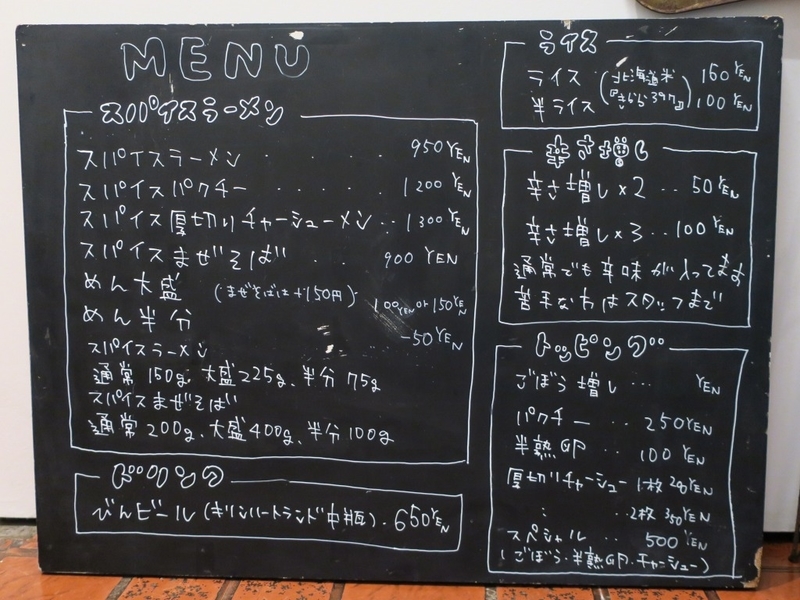 MENU
スパイスラーメン
スパイスラーメン . . . . 950YEN
スパイスパクチー . . . . . 1200YEN
スパイス厚切りチャーシューメン .. 1300YEN
スパイスまぜそば . . 900YEN
めん大盛 (まぜそばは+150円) 100YEN or 150YEN
めん半分 -50YEN
スパイスラーメン
通常150g、大盛225g、半分75g
スパイスまぜそば
通常200g、大盛400g、半分100g
ドリンク
びんビール(キリンハートランド中瓶). 650YEN
ライス
ライス (北海道米 150YEN
半ライス 『きらら397』) 100YEN
辛さ増し
辛さ増し×2 .. 50YEN
辛さ増し×3 .. 100YEN
通常でも辛味が入ってます
苦手な方はスタッフまで
トッピング
ごぼう増し ... YEN
パクチー .. 250YEN
半熟GP .. 100YEN
厚切りチャーシュー 1枚 YEN
: . 2枚 350YEN
スペシャル .. 500YEN
(ごぼう・半熟GP・チャーシュー)